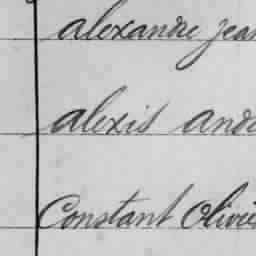 alexandre jean
alexis andr
Constant Olivie